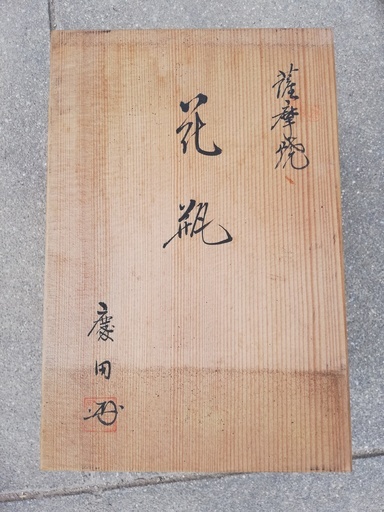 薩摩焼
花瓶
慶田窯